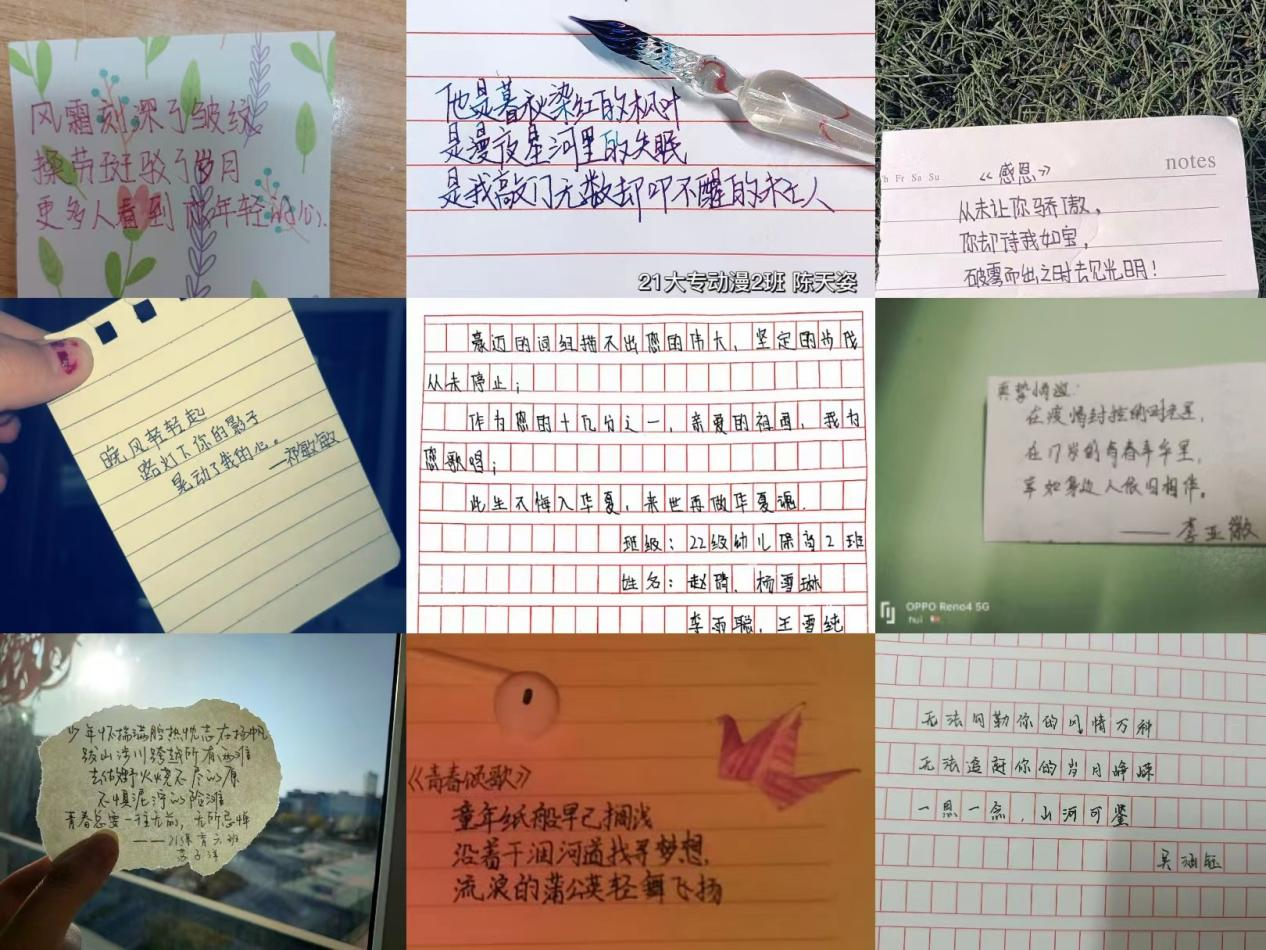 风霜刻深了皱纹
操劳斑驳了岁月
更多人看到你年轻的心.
他是暮秋染红的枫叶
是漫夜星河里的失眠
是我敲门无数却叩不醒的未亡人
21大专动漫2班 陈天姿
notes
Th Fr Sa Su
《感恩》
从未让你骄傲,
你却待我如宝,
破雾而出之时去见光明!
晚风轻轻起
路灯下你的影子
晃动了我的心。
——祁敏敏
豪迈的词组描不出您的伟大,坚定的步伐
从未停止;
作为您的十九分之一,亲爱的祖国,我为
您歌唱;
此生不悔入华夏,来世再做华夏魂.
班级:22级幼儿保育2班
姓名:赵晴,杨雪琳
李雨聪,王雪纯
真挚情谊:
在疫情封控的时光里,
在17岁的青春年华里,
幸如身边人依旧相伴。
——李亚微
OPPO Reno4 5G
hui
少年怀揣满腔热忱志在扬帆
跋山涉川跨越所有
野火烧不尽的原
不惧泥泞的险滩
青春总要一往无前,无所忌惮
《青春颂歌》
童年纸船早已搁浅
沿着干涸河道找寻梦想.
流浪的蒲公英轻舞飞扬
无法勾勒你的风情万种
无法追赶你的岁月峥嵘
一思一念,山河可鉴
吴涵钰